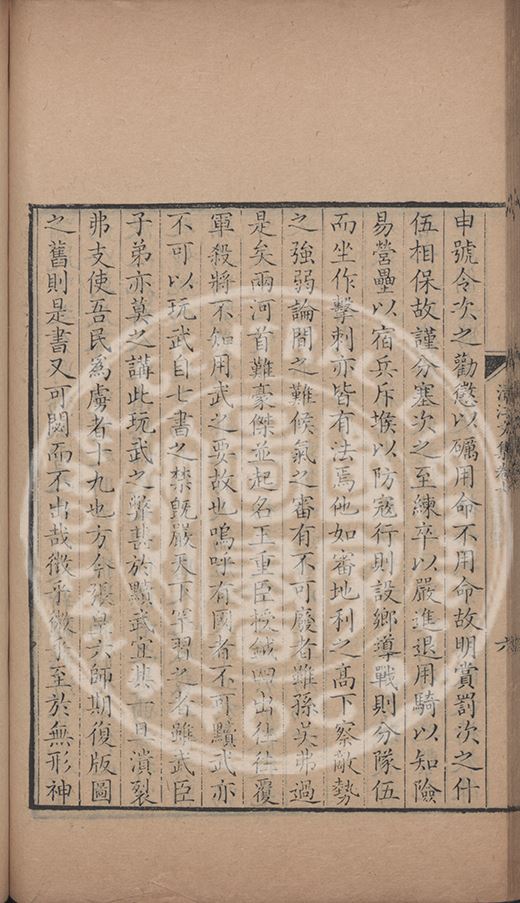 申號令次之勸懲以礪用命不用命故明賞罰次之什
伍相保故謹分塞次之至練卒以嚴進退用騎以知險
易營壘以宿兵斥堠以防寇行則設鄉導戰則分隊伍
而坐作擊刺亦皆有法焉他如審地利之高下察敵勢
之強弱論間之難候氣之審有不可廢者雖孫吳弗過
是矣兩河首難豪傑並起名王重臣授鉞四出往往覆
軍殺將不知用武之要故也嗚呼有國者不可黷武亦
不可以玩武自七書之禁既嚴天下罕習之者雖武臣
子弟亦莫之講此玩武之弊甚於黷武宜其一旦潰裂
弗支使吾民為虜者十九也方今張皇六師期復版圖
之舊則是書又可闕而不出哉微乎微乎至於無形神
六